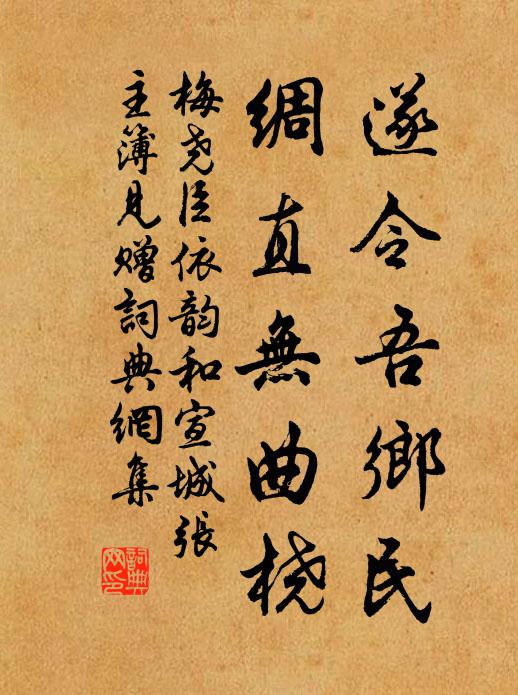 遂令吾鄉民
綢直無曲橈
梅尧臣依韵和宣城張
主簿見贈詞典網集
詞典
网印